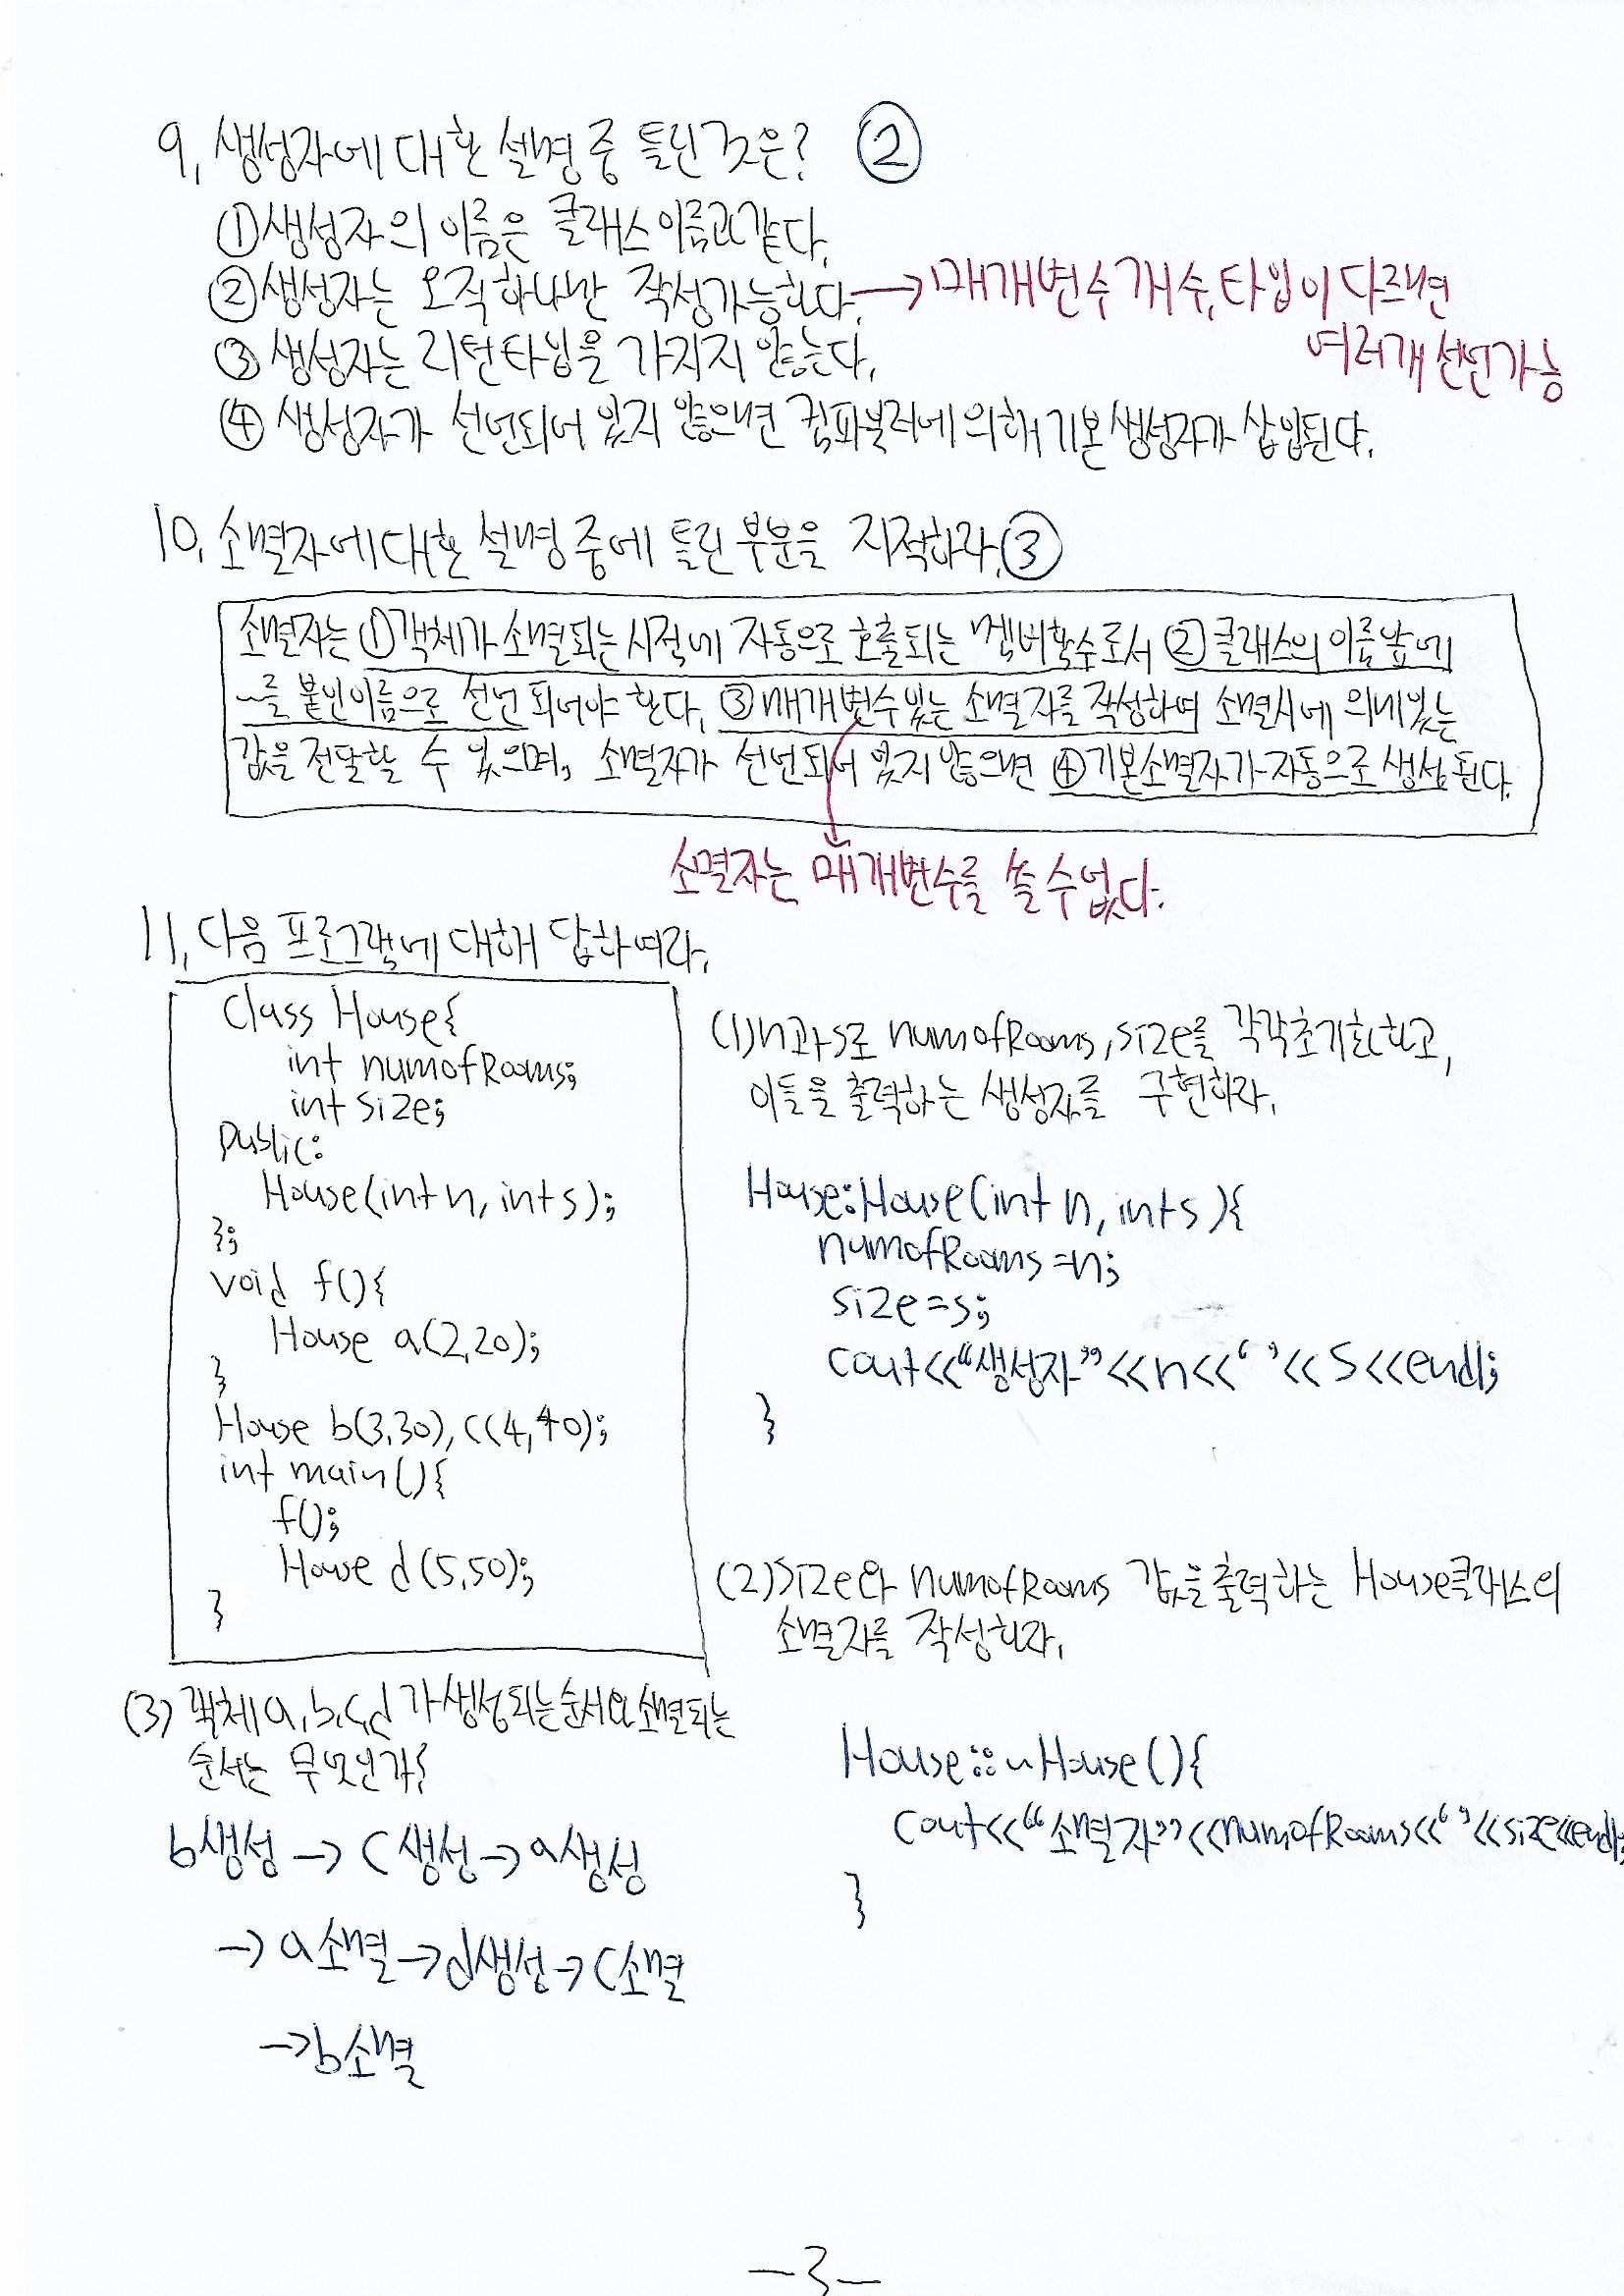 9. 생성자에 대한 설명 중 틀린 것은? ②
①생성자의 이름은 클래스 이름과 같다.
②생성자는 오직 하나만 작성가능하다. → 매개변수 개수, 타입이 다르면
여러개 선언가능
③ 생성자는 리턴타입을 가지지 않는다.
④ 생성자가 선언되어 있지 않으면 컴파일러에 의해 기본 생성자가 삽입된다.
10. 소멸자에 대한 설명 중에 틀린 부분을 지적하라. ③
소멸자는 ①객체가 소멸되는 시점에 자동으로 호출되는 멤버함수로서 ②클래스의 이름 앞에
~를 붙인 이름으로 선언되어야 한다. ③매개변수 있는 소멸자를 작성하여 소멸시에 의미있는
값을 전달할 수 있으며, 소멸자가 선언되어 있지 않으면 ④기본소멸자가 자동으로 생성된다.
소멸자는 매개변수를 쓸 수 없다.
11. 다음 프로그램에 대해 답하여라.
class House{
int numofRooms;
int size;
public:
House(int n, int s);
};
void f(){
House a(2,20);
}
House b(3,30), c(4,40);
int main(){
f();
House d(5,50);
}
(1)n과 s로 numofRooms, size를 각각 초기화하고,
이들을 출력하는 생성자를 구현하라.
House::House(int n, int s){
numofRooms=n;
size=s;
cout<<"생성자"<<n<<' '<<s<<endl;
}
(2)size와 numofRooms 값을 출력하는 House클래스의
소멸자를 작성하라.
House::~House(){
cout<<"소멸자"<<numofRooms<<' '<<size<<endl;
}
(3) 객체 a,b,c,d 가 생성되는 순서와 소멸되는
순서는 무엇인가?
b생성 → c생성 → a생성
→ a소멸 → d생성 → c소멸
→ b소멸
-3-